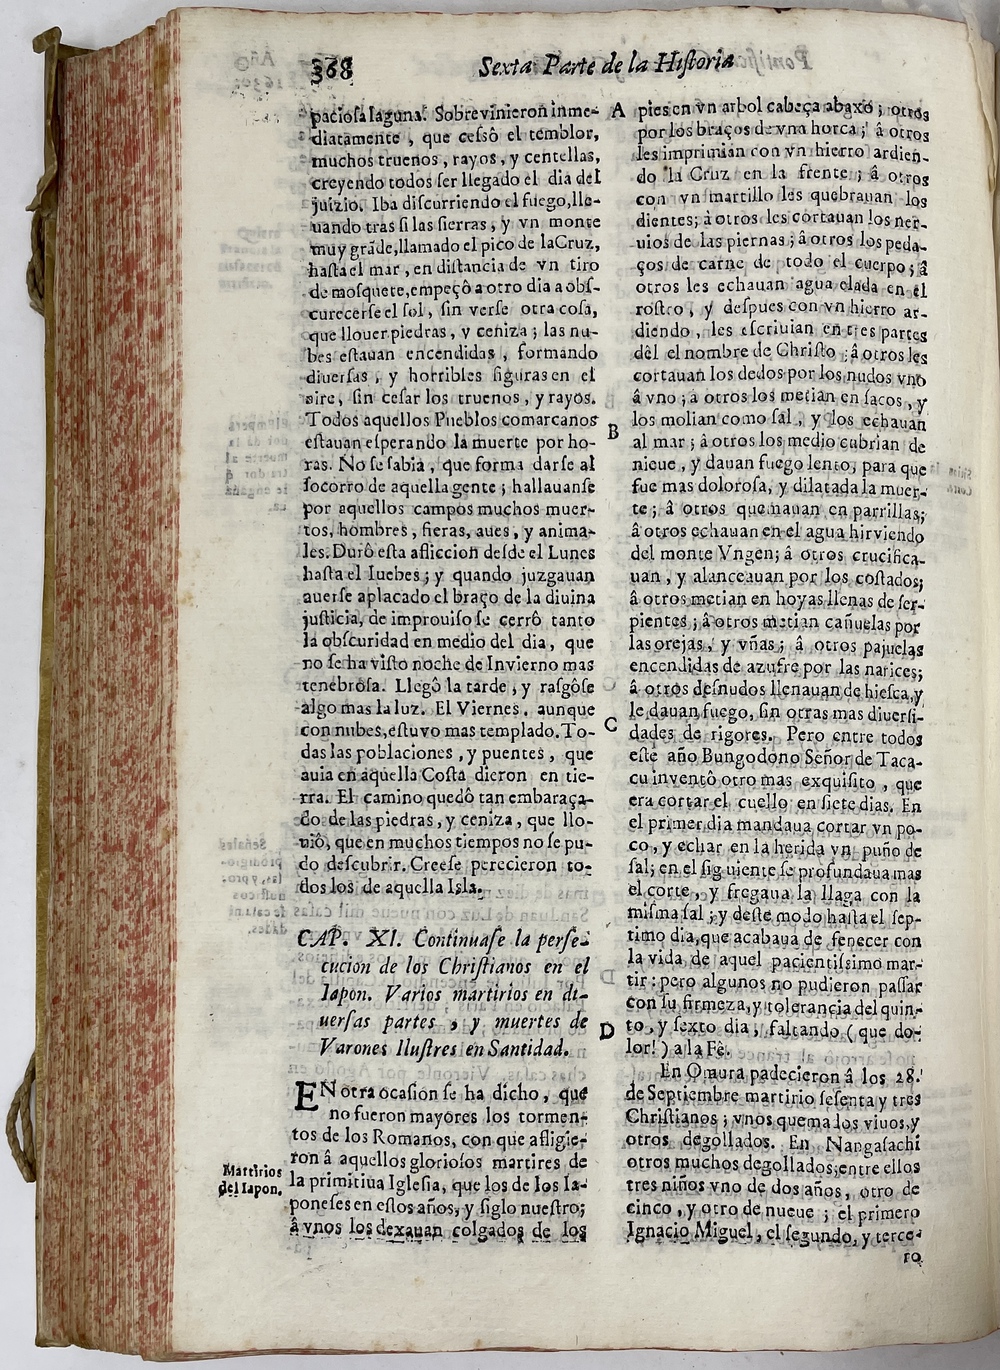 368
Sexta Parte de la Historia
paciosa laguna. Sobrevinieron inme-
diatamente, que cessô el temblor,
muchos truenos, rayos, y centellas,
creyendo todos ser llegado el dia del
juizio. Iba discurriendo el fuego, lle-
uando tras si las sierras, y vn monte
muy grãde, llamado el pico de la Cruz,
hasta el mar, en distancia de vn tiro
de mosquete, empeçô a otro dia a obs-
curecerse el sol, sin verse otra cosa,
que llouer piedras, y ceniza; las nu-
bes estauan encendidas, formando
diuersas, y horribles figuras en el
aire, sin cesar los truenos, y rayos.
Todos aquellos Pueblos comarcanos
estauan esperando la muerte por ho-
ras. No se sabia, que forma darse al
socorro de aquella gente; hallauanse
por aquellos campos muchos muer-
tos, hombres, fieras, aues, y anima-
les. Durô esta afliccion desde el Lunes
hasta el Iuebes; y quando juzgauan
auerse aplacado el braço de la diuina
justicia, de improuiso se cerrô tanto
la obscuridad en medio del dia, que
no se ha visto noche de Invierno mas
tenebrosa. Llegô la tarde, y rasgôse
algo mas la luz. El Viernes, aunque
con nubes, estuvo mas templado. To-
das las poblaciones, y puentes, que
auia en aquella Costa dieron en tie-
rra. El camino quedô tan embaraça-
do de las piedras, y ceniza, que llo-
uiô, que en muchos tiempos no se pu-
do descubrir. Creese perecieron to-
dos los de aquella Isla.
CAP. XI. Continuase la perse-
cucion de los Christianos en el
Iapon. Varios martirios en di-
uersas partes, y muertes de
Varones Ilustres en Santidad.
EN otra ocasion se ha dicho, que
no fueron mayores los tormen-
tos de los Romanos, con que afligie-
ron â aquellos gloriosos martires de
la primitiua Iglesia, que los de los Ia-
poneses en estos años, y siglo nuestro;
â vnos los dexauan colgados de los
Martirios
del Iapon.
A
B
C
D
pies en vn arbol cabeça abaxo; otros
por los braços de vna horca; â otros
les imprimian con vn hierro ardien-
do la Cruz en la frente; â otros
con vn martillo les quebrauan los
dientes; â otros les cortauan los ner-
uios de las piernas; â otros los peda-
ços de carne de todo el cuerpo; â
otros les echauan agua elada en el
rostro, y despues con vn hierro ar-
diendo, les escriuian en tres partes
dêl el nombre de Christo; â otros les
cortauan los dedos por los nudos vno
â vno; â otros los metian en sacos, y
los molian como sal, y los echauan
al mar; â otros los medio cubrian de
nieue, y dauan fuego lento, para que
fue mas dolorosa, y dilatada la muer-
te; â otros quemauan en parrillas;
â otros echauan en el agua hirviendo
del monte Vngen; â otros crucifica-
uan, y alanceauan por los costados;
â otros metian en hoyas llenas de ser-
pientes; â otros metian cañuelas por
las orejas, y vñas; â otros pajuelas
encendidas de azufre por las narices;
â otros desnudos llenauan de hiesca, y
le dauan fuego, sin otras mas diversi-
dades de rigores. Pero entre todos
este año Bungodono Señor de Taca-
cu inventô otro mas exquisito, que
era cortar el cuello en siete dias. En
el primer dia mandaua cortar vn po-
co, y echar en la herida vn puño de
sal; en el siguiente se profundaua mas
el corte, y fregaua la llaga con la
misma sal; y deste modo hasta el sep-
timo dia, que acabaua de fenecer con
la vida de aquel pacientissimo mar-
tir: pero algunos no pudieron passar
con su firmeza, y tolerancia del quin-
to, y sexto dia, faltando (que do-
lor!) a la Fê.
En Omura padecieron â los 28.
de Septiembre martirio sesenta y tres
Christianos; vnos quemados viuos, y
otros degollados. En Nangasachi
otros muchos degollados; entre ellos
tres niños vno de dos años, otro de
cinco, y otro de nueue; el primero
Ignacio Miguel, el segundo, y terce-
ro